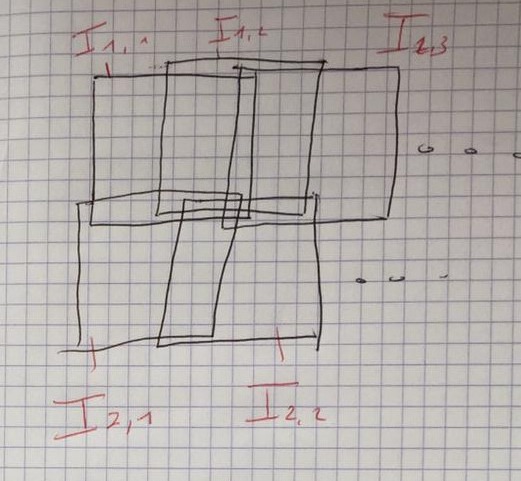 I1,1 I1,2 I2,3
I2,1 I2,2